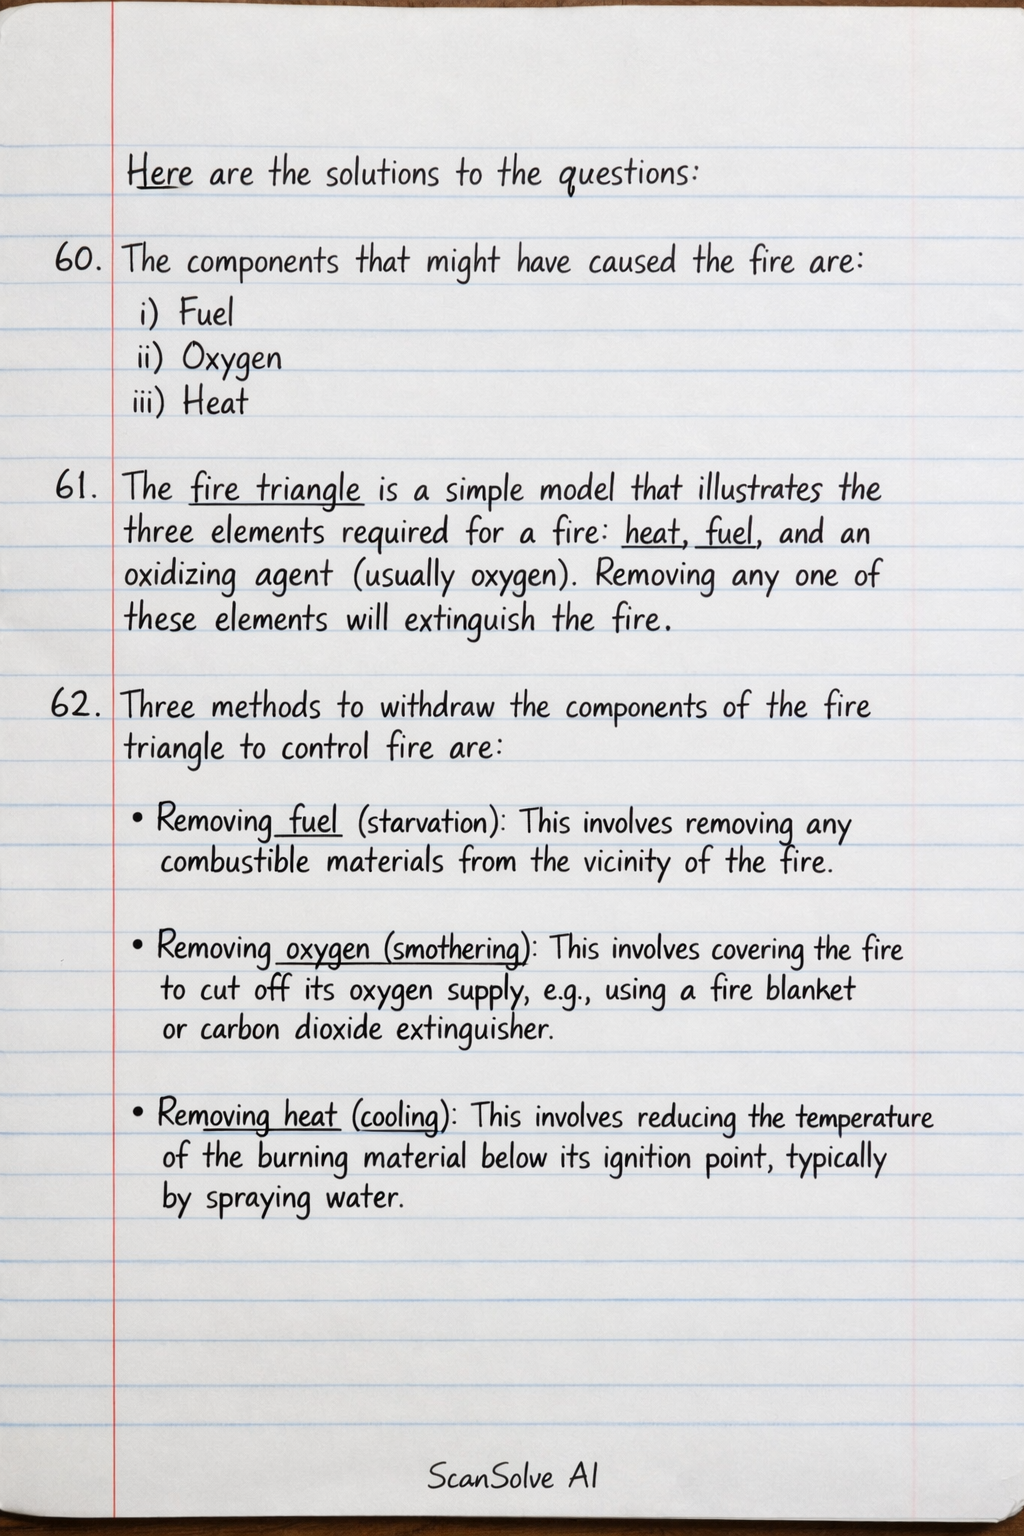 Here are the solutions to the questions:
60. The components that might have caused the fire are:
i) Fuel
ii) Oxygen
iii) Heat
61. The fire triangle is a simple model that illustrates the
three elements required for a fire: heat, fuel, and an
oxidizing agent (usually oxygen). Removing any one of
these elements will extinguish the fire.
62. Three methods to withdraw the components of the fire
triangle to control fire are:
• Removing fuel (starvation): This involves removing any
combustible materials from the vicinity of the fire.
• Removing oxygen (smothering): This involves covering the fire
to cut off its oxygen supply, e.g., using a fire blanket
or carbon dioxide extinguisher.
• Removing heat (cooling): This involves reducing the temperature
of the burning material below its ignition point, typically
by spraying water.
ScanSolve AI